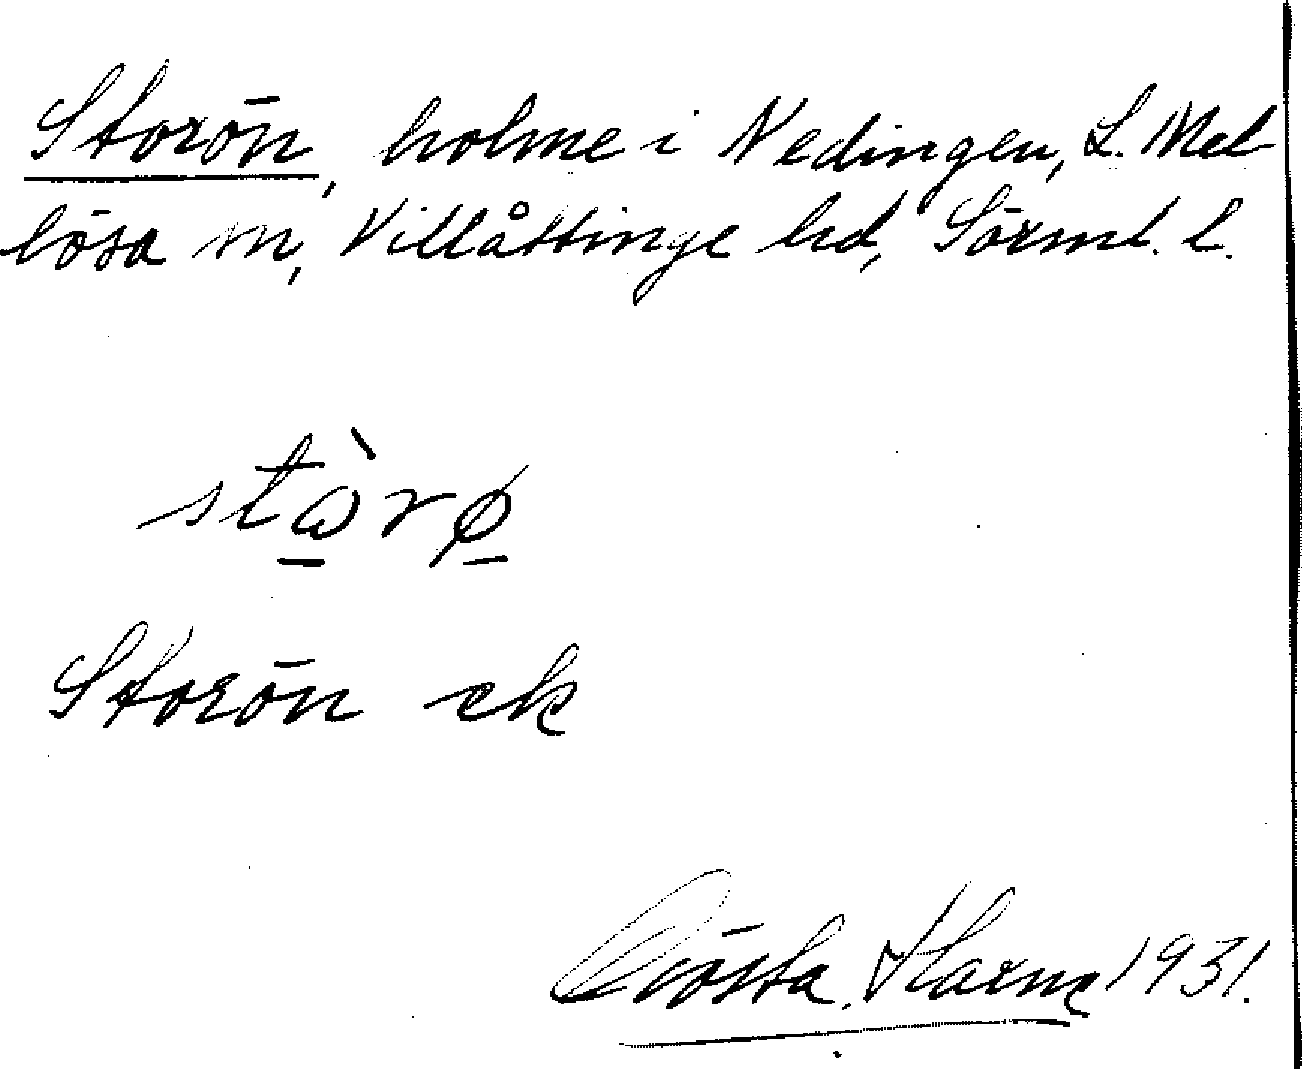 Storön, holme i Nedingen, L. Mel
lösa sn, Villåttinge hd, Sörml. l.
stὼ̱rø̱
Storön ek
Gösta Harme 1931.